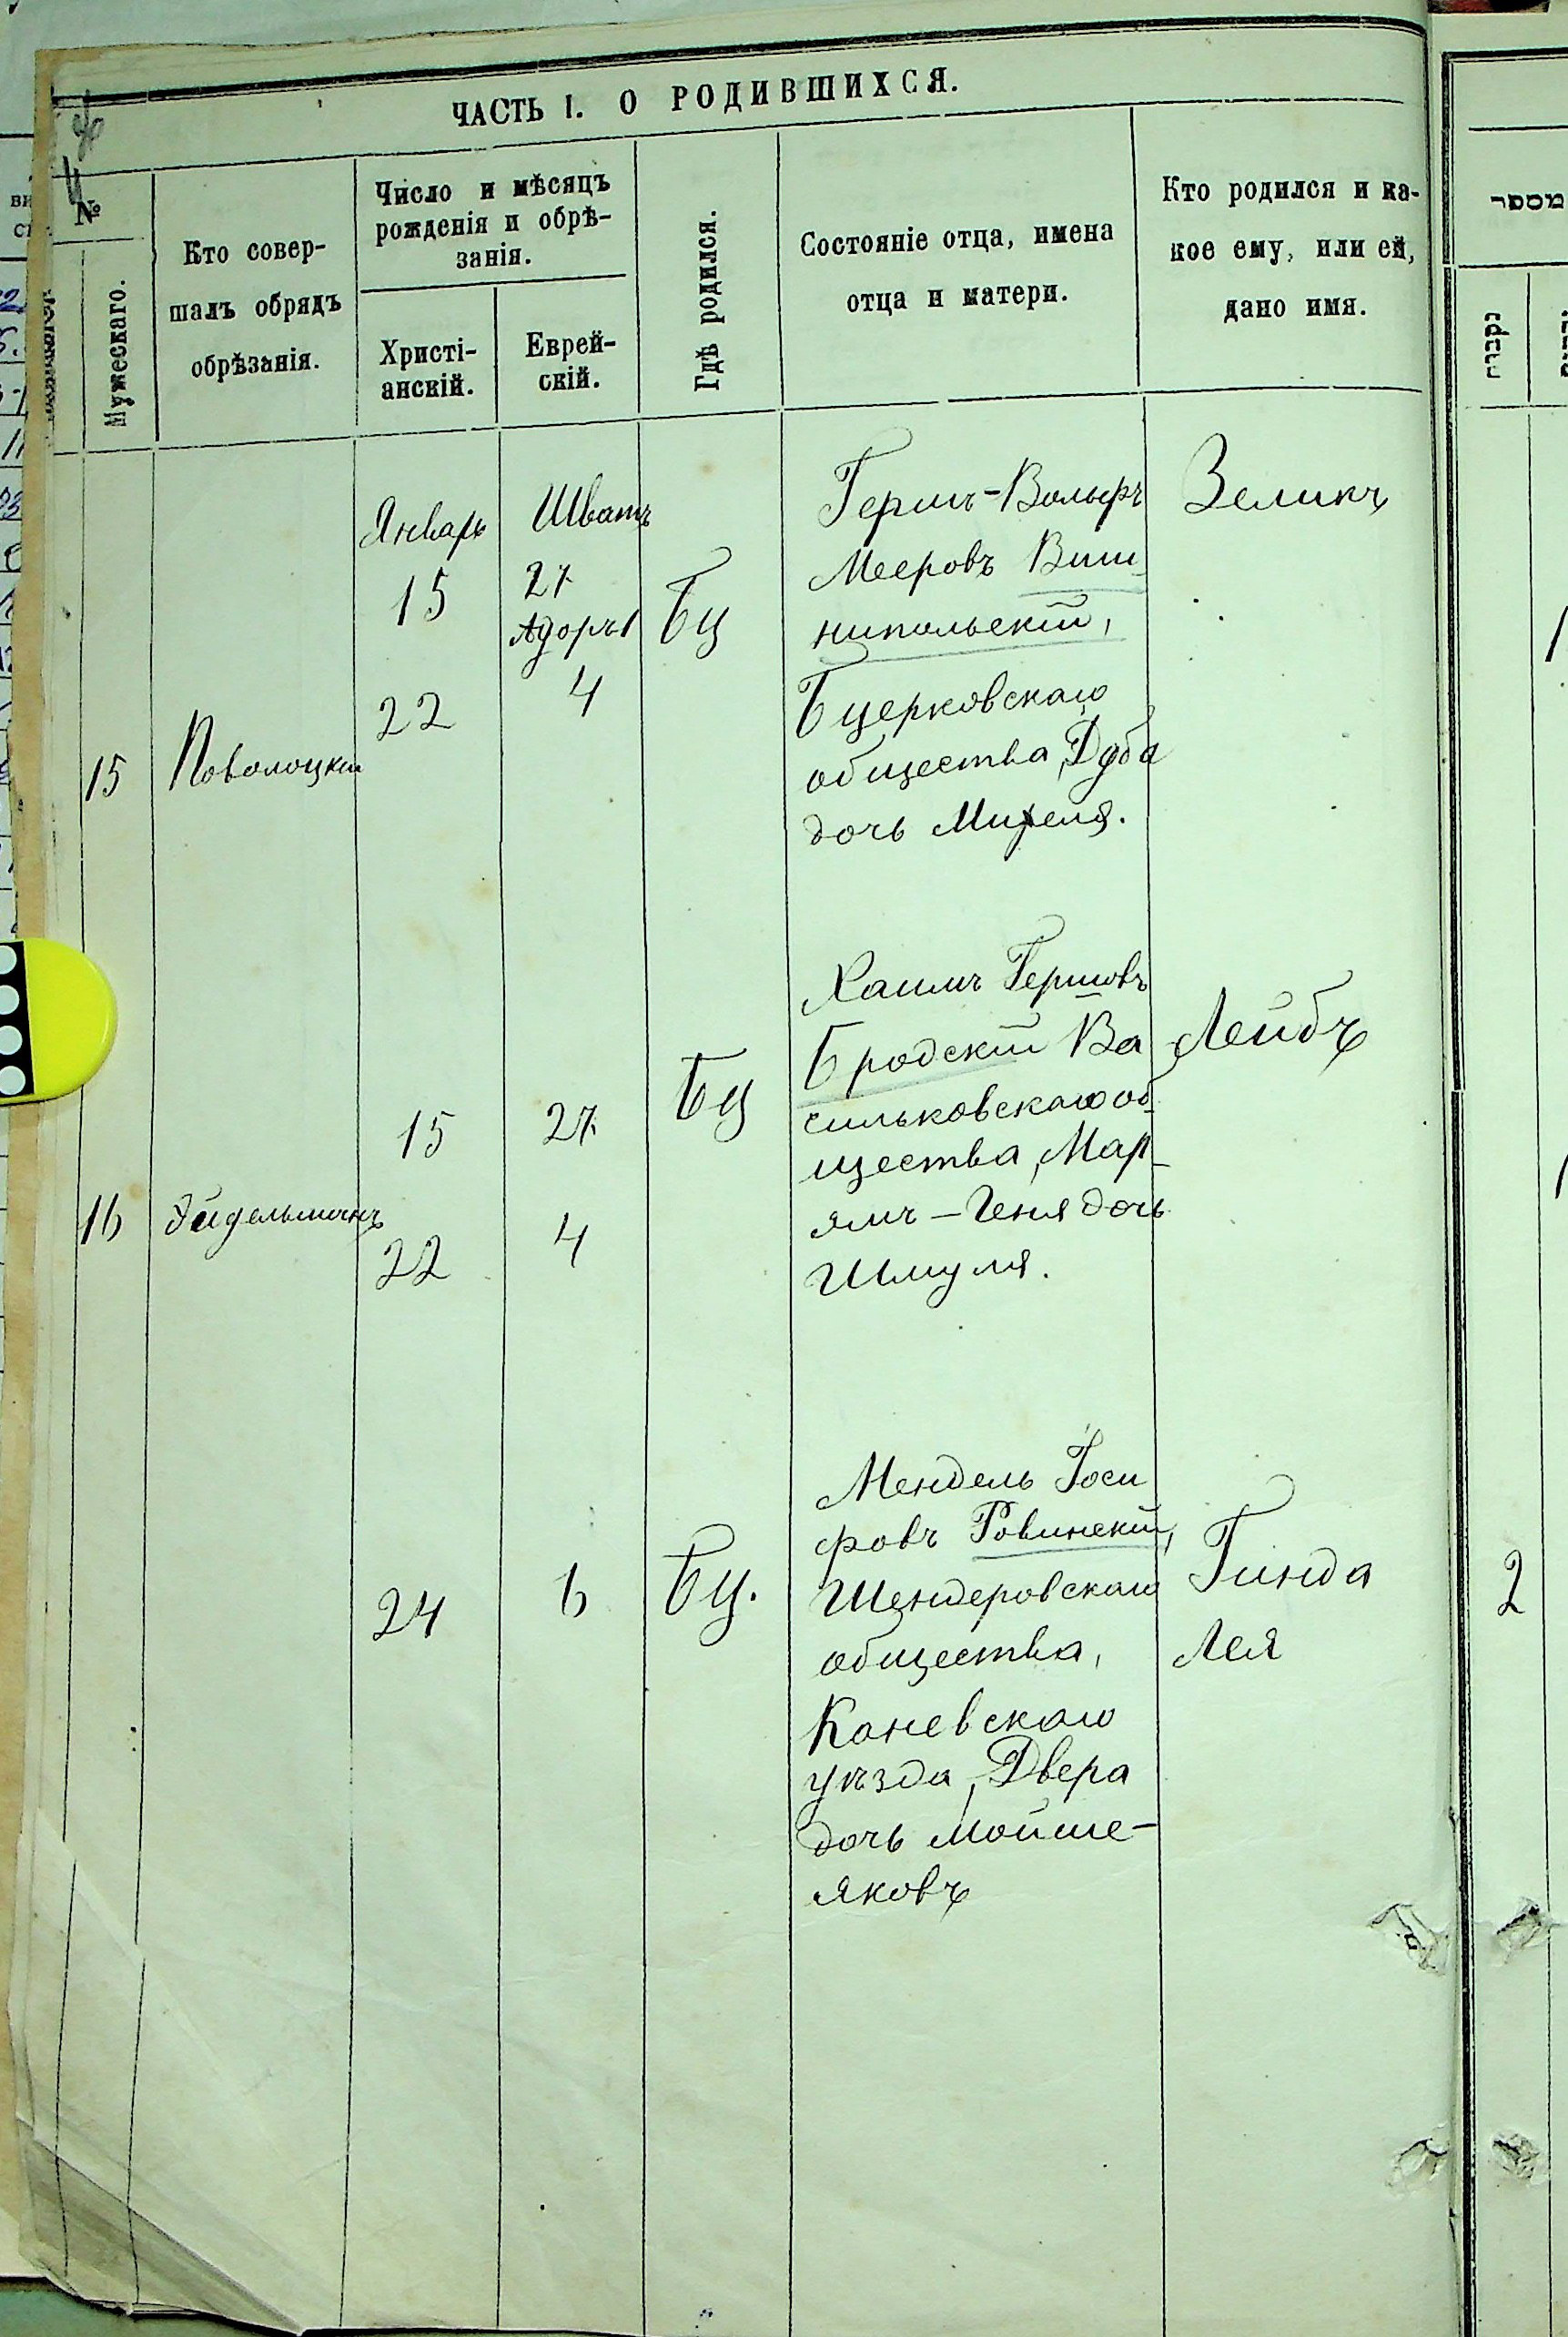 ЧАСТЬ I. О РОДИВШИХСЯ.
№
Мужескаго.
Кто совер-
шалъ обрядъ
обрѣзанія.
Число и мѣсяцъ
рожденія и обрѣ-
занія.
Христі-
анскій.
Еврей-
скій.
Гдѣ родился.
Состояніе отца, имена
отца и матери.
Кто родился и ка-
кое ему, или ей,
дано имя.
מספר
נקבות
15
Поволоцкій
Январь
15
22
Шватъ
27
Адоръ 1
4
Бц
Герш-Вольфъ
Мееровъ Виш-
нипольскій,
Бцерковскаго
общества, Дуба
дочь Михеля.
Зеликъ
1
16
Эйдельманъ
15
22
27
4
Бц
Хаимъ Гершовъ
Бродскій Ва
сильковскаго об-
щества, Мар-
ямъ-Геня дочь
Шмуля.
Лейбъ
1
24
6
Бц.
Мендель Іоси
фовъ Ровинскій,
Шендеровскаго
общества,
Каневскаго
уѣзда, Двера
дочь Мойше-
Яковъ
Гинда
Лея
2